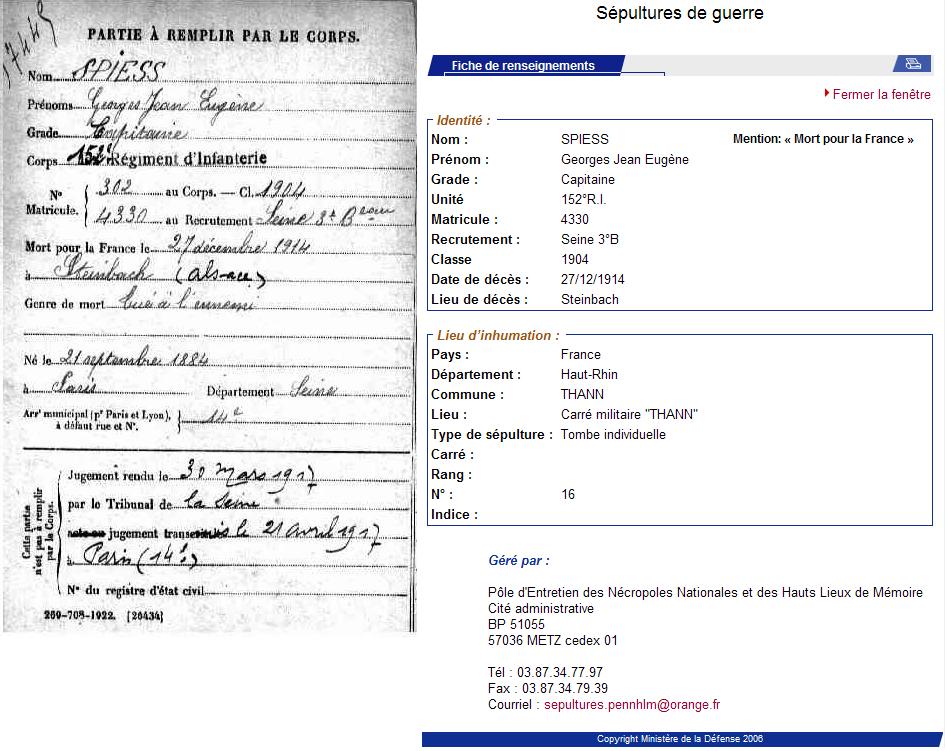 17445
PARTIE À REMPLIR PAR LE CORPS.
Nom SPIESS
Prénoms Georges Jean Eugène
Grade Capitaine
Corps 152e Régiment d'Infanterie
N° Matricule. 302 au Corps. — Cl. 1904
4330 au Recrutement Seine 3e Beau
Mort pour la France le 27 décembre 1914
à Steinbach (alsace)
Genre de mort tué à l'ennemi
Né le 21 septembre 1884
à Paris Département Seine
Arrt municipal (pr Paris et Lyon), à défaut rue et N°. 14e
Cette partie n'est pas à remplir par le Corps.
Jugement rendu le 30 Mars 1917
par le Tribunal de la Seine
acte ou jugement transcrit le 21 avril 1917
à Paris (14e)
N° du registre d'état civil
269-708-1922. [26434]
Sépultures de guerre
Fiche de renseignements
Fermer la fenêtre
Identité :
Nom : SPIESS Mention: « Mort pour la France »
Prénom : Georges Jean Eugène
Grade : Capitaine
Unité 152°R.I.
Matricule : 4330
Recrutement : Seine 3°B
Classe 1904
Date de décès : 27/12/1914
Lieu de décès : Steinbach
Lieu d'inhumation :
Pays : France
Département : Haut-Rhin
Commune : THANN
Lieu : Carré militaire "THANN"
Type de sépulture : Tombe individuelle
Carré :
Rang :
N° : 16
Indice :
Géré par :
Pôle d'Entretien des Nécropoles Nationales et des Hauts Lieux de Mémoire
Cité administrative
BP 51055
57036 METZ cedex 01
Tél : 03.87.34.77.97
Fax : 03.87.34.79.39
Courriel : sepultures.pennhlm@orange.fr
Copyright Ministère de la Défense 2006